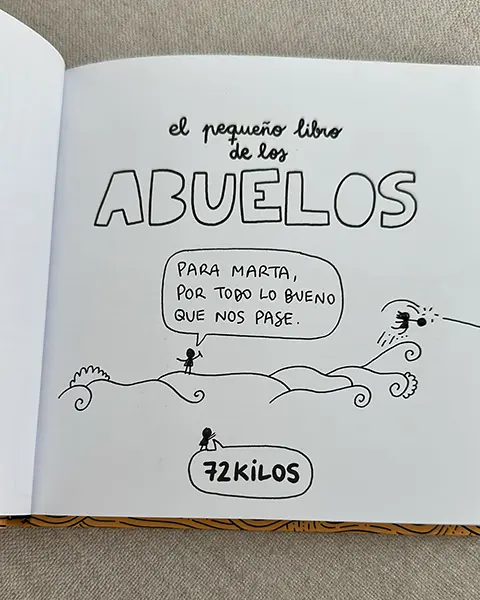 el pequeño libro
de los
ABUELOS
PARA MARTA,
POR TODO LO BUENO
QUE NOS PASE.
72KiLOS